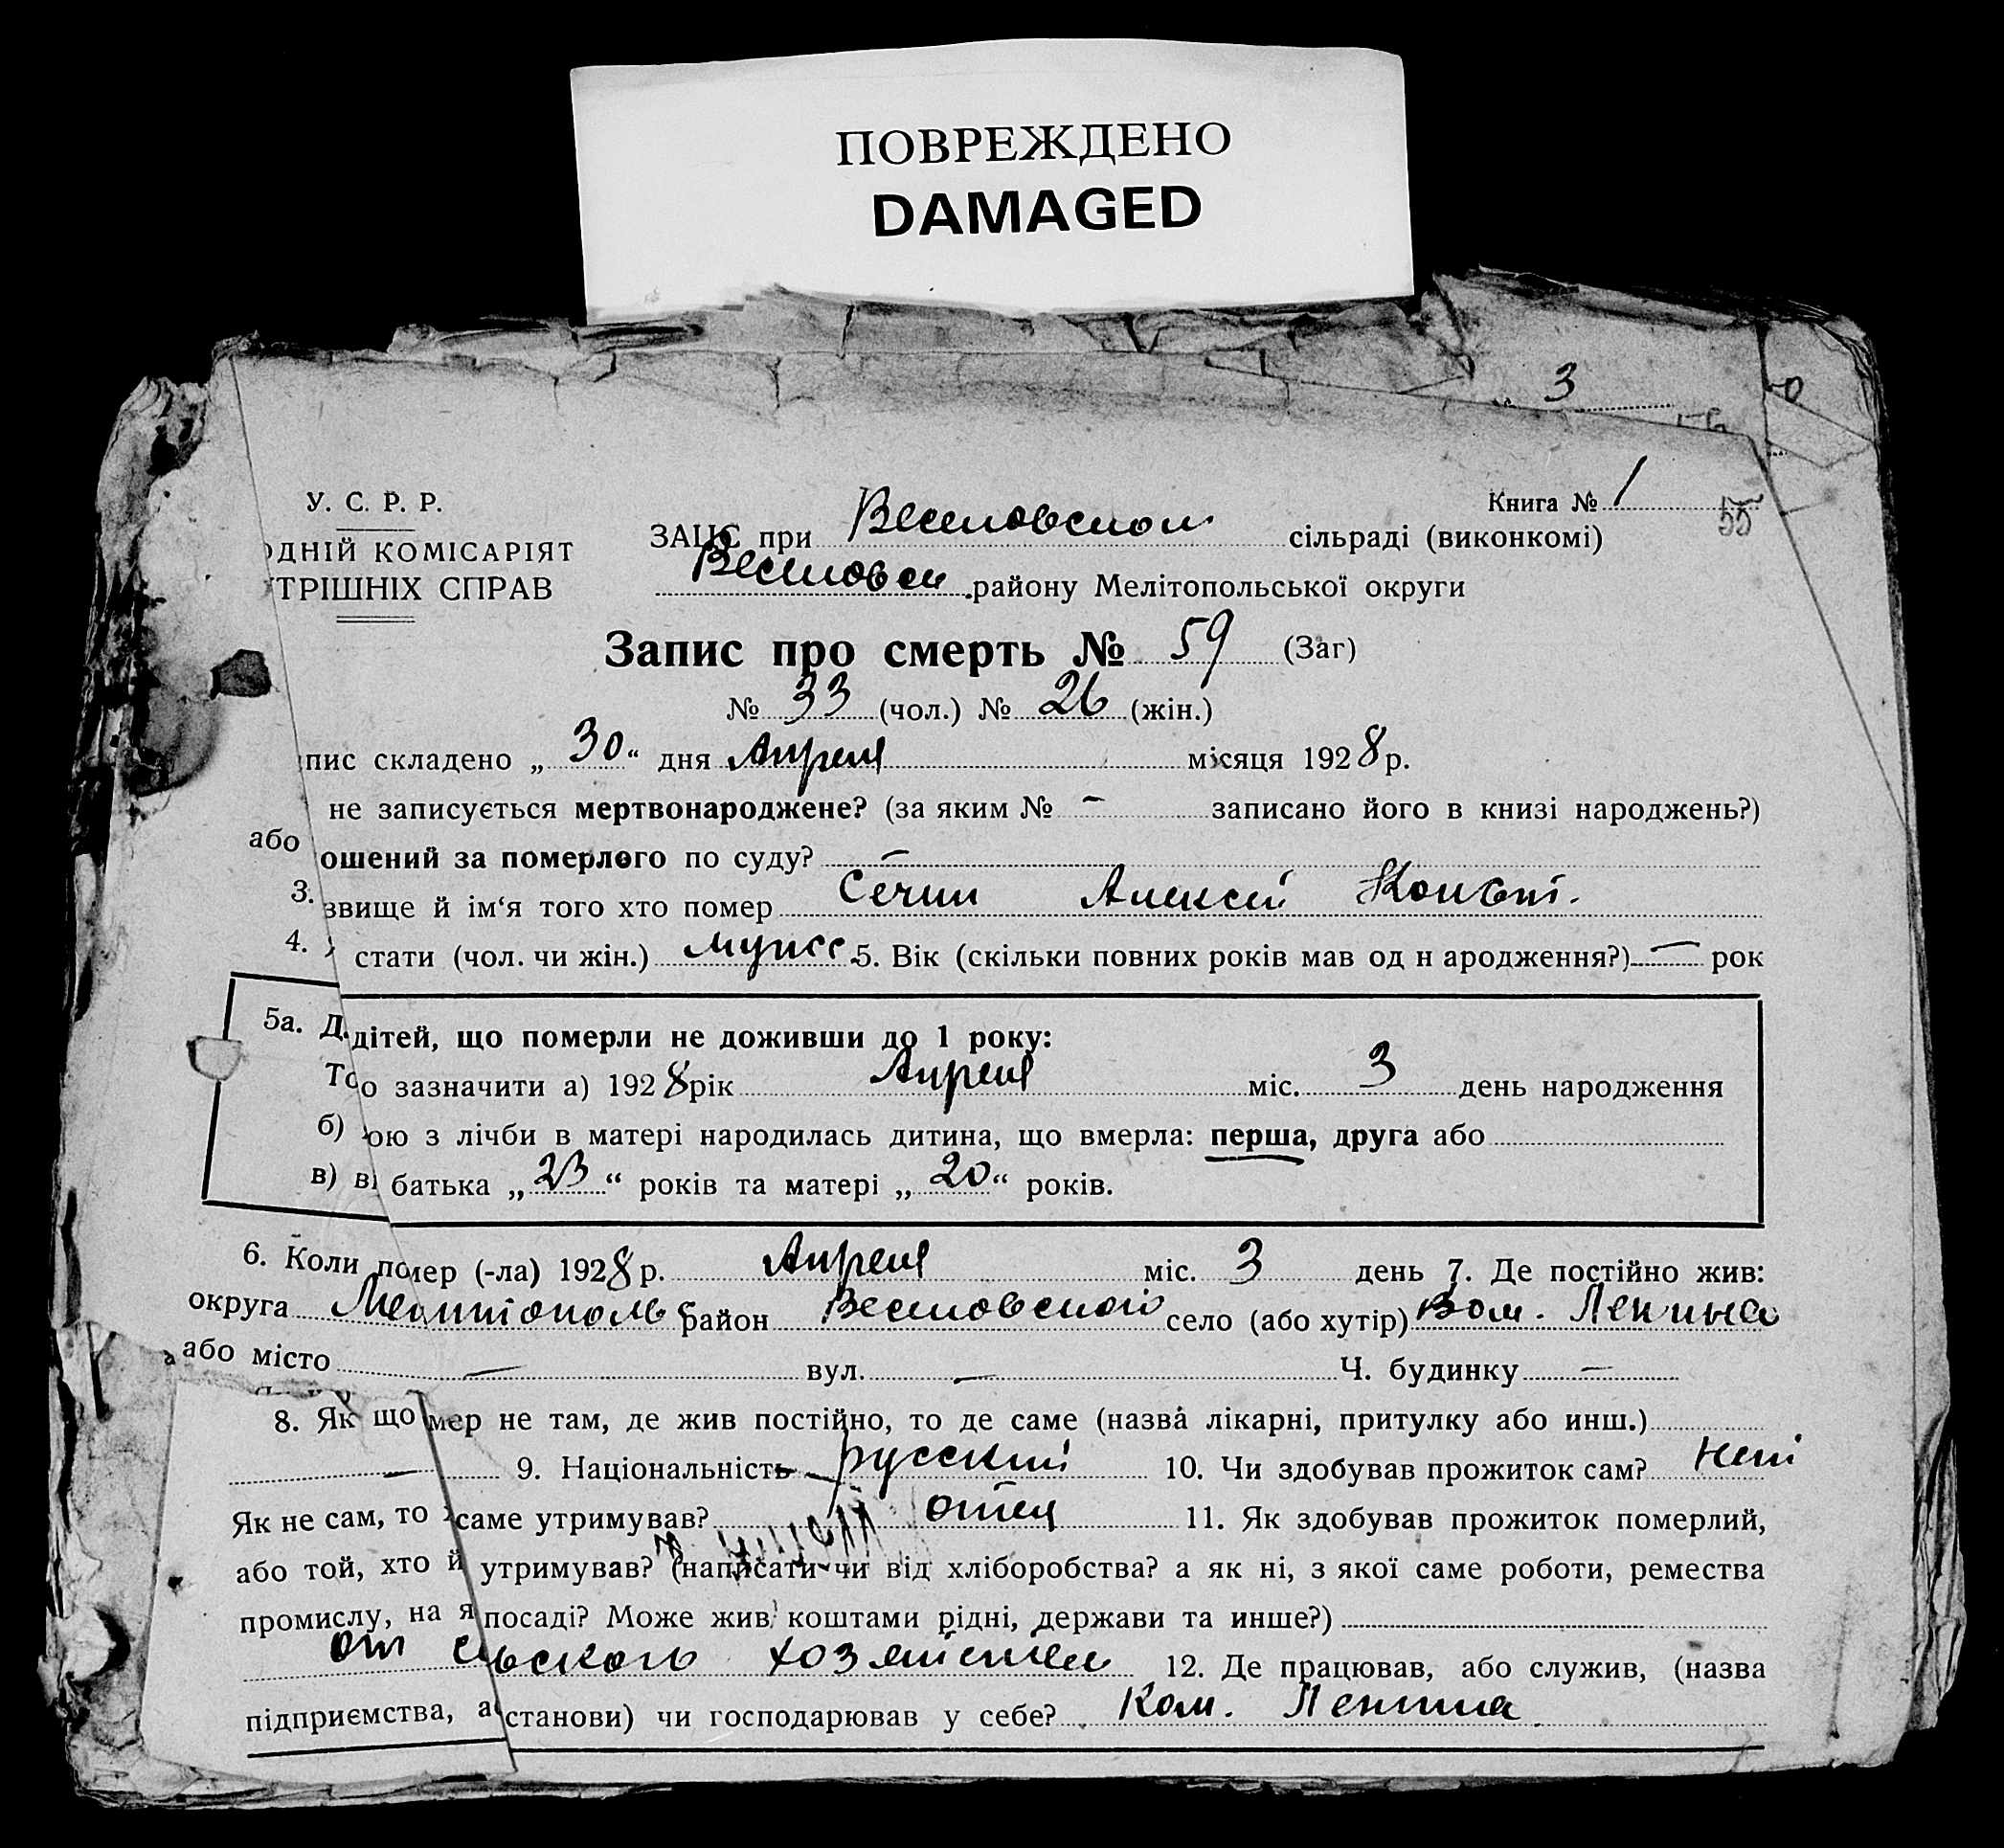 ПОВРЕЖДЕНО
DAMAGED
3
У. С. Р. Р.
Книга № 1
55
ОДНІЙ КОМІСАРІЯТ
ТРІШНІХ СПРАВ
ЗАЦС при Веселовском сільраді (виконкомі)
Веселовск. району Мелітопольської округи
Запис про смерть № 59 (Заг)
№ 33 (чол.) № 26 (жін.)
пис складено „ 30 “ дня Апреля місяця 1928 р.
не записується мертвонароджене? (за яким № – записано його в книзі народжень?)
або ошений за померлого по суду? –
3. звище й ім‘я того хто помер Сечин Алексей
4. стати (чол. чи жін.) мужс. 5. Вік (скільки повних років мав од н ародження?) — рок
5а. Д. дітей, що померли не доживши до 1 року:
То о зазначити а) 1928 рік Апреля міс. 3 день народження
б) ою з лічби в матері народилась дитина, що вмерла: перша, друга або
в) ві батька „ 23 “ років та матері „ 20 “ років.
6. Коли помер (-ла) 1928 р. Апреля міс. 3 день 7. Де постійно жив:
округа Мелитополь район Веселовского село (або хутір) Ком. Ленина
або місто — вул. — Ч. будинку —
8. Як що мер не там, де жив постійно, то де саме (назва лікарні, притулку або инш.)
— 9. Національність русский 10. Чи здобував прожиток сам? нет
Як не сам, то х саме утримував? отец 11. Як здобував прожиток померлий,
або той, хто й утримував? (написати чи від хліборобства? а як ні, з якої саме роботи, ремества
промислу, на я посаді? Може жив коштами рідні, держави та инше?)
от сельского хозяйства 12. Де працював, або служив, (назва
підприємства, а станови) чи господарював у себе? Ком. Ленина